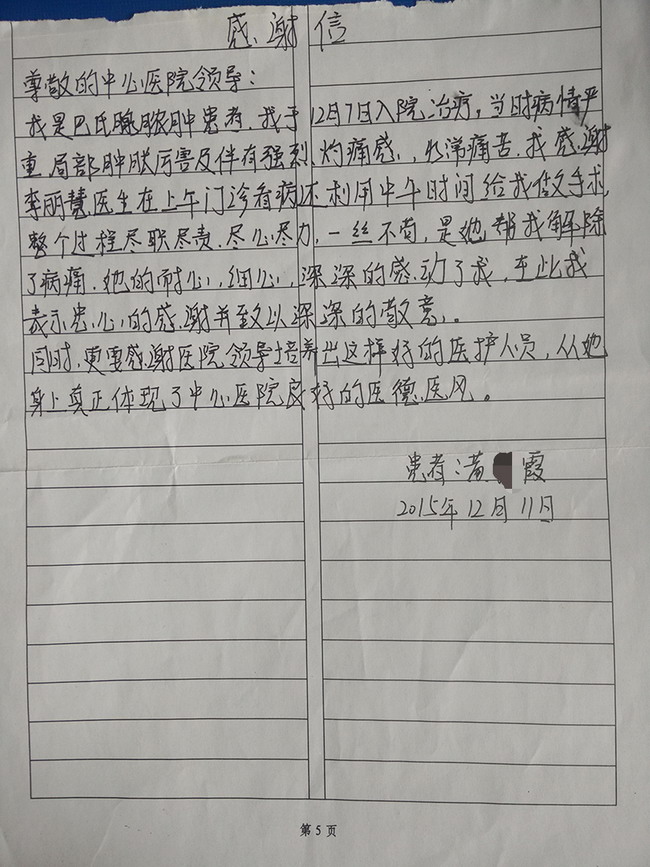 感谢信
尊敬的中心医院领导：
我是巴氏腺脓肿患者，我于12月7日入院治疗，当时病情严
重，局部肿胀厉害及伴有强烈灼痛感，非常痛苦，我感谢
李丽慧医生在上午门诊看病还利用中午时间给我做手术，
整个过程尽职尽责，尽心尽力，一丝不苟，是她帮我解除
了病痛，她的耐心，细心，深深的感动了我，在此我
表示忠心的感谢并致以深深的敬意。
同时，更要感谢医院领导培养出这样好的医护人员，从她
身上真正体现了中心医院良好的医德医风。
患者：黄 霞
2015年12月11日
第 5 页